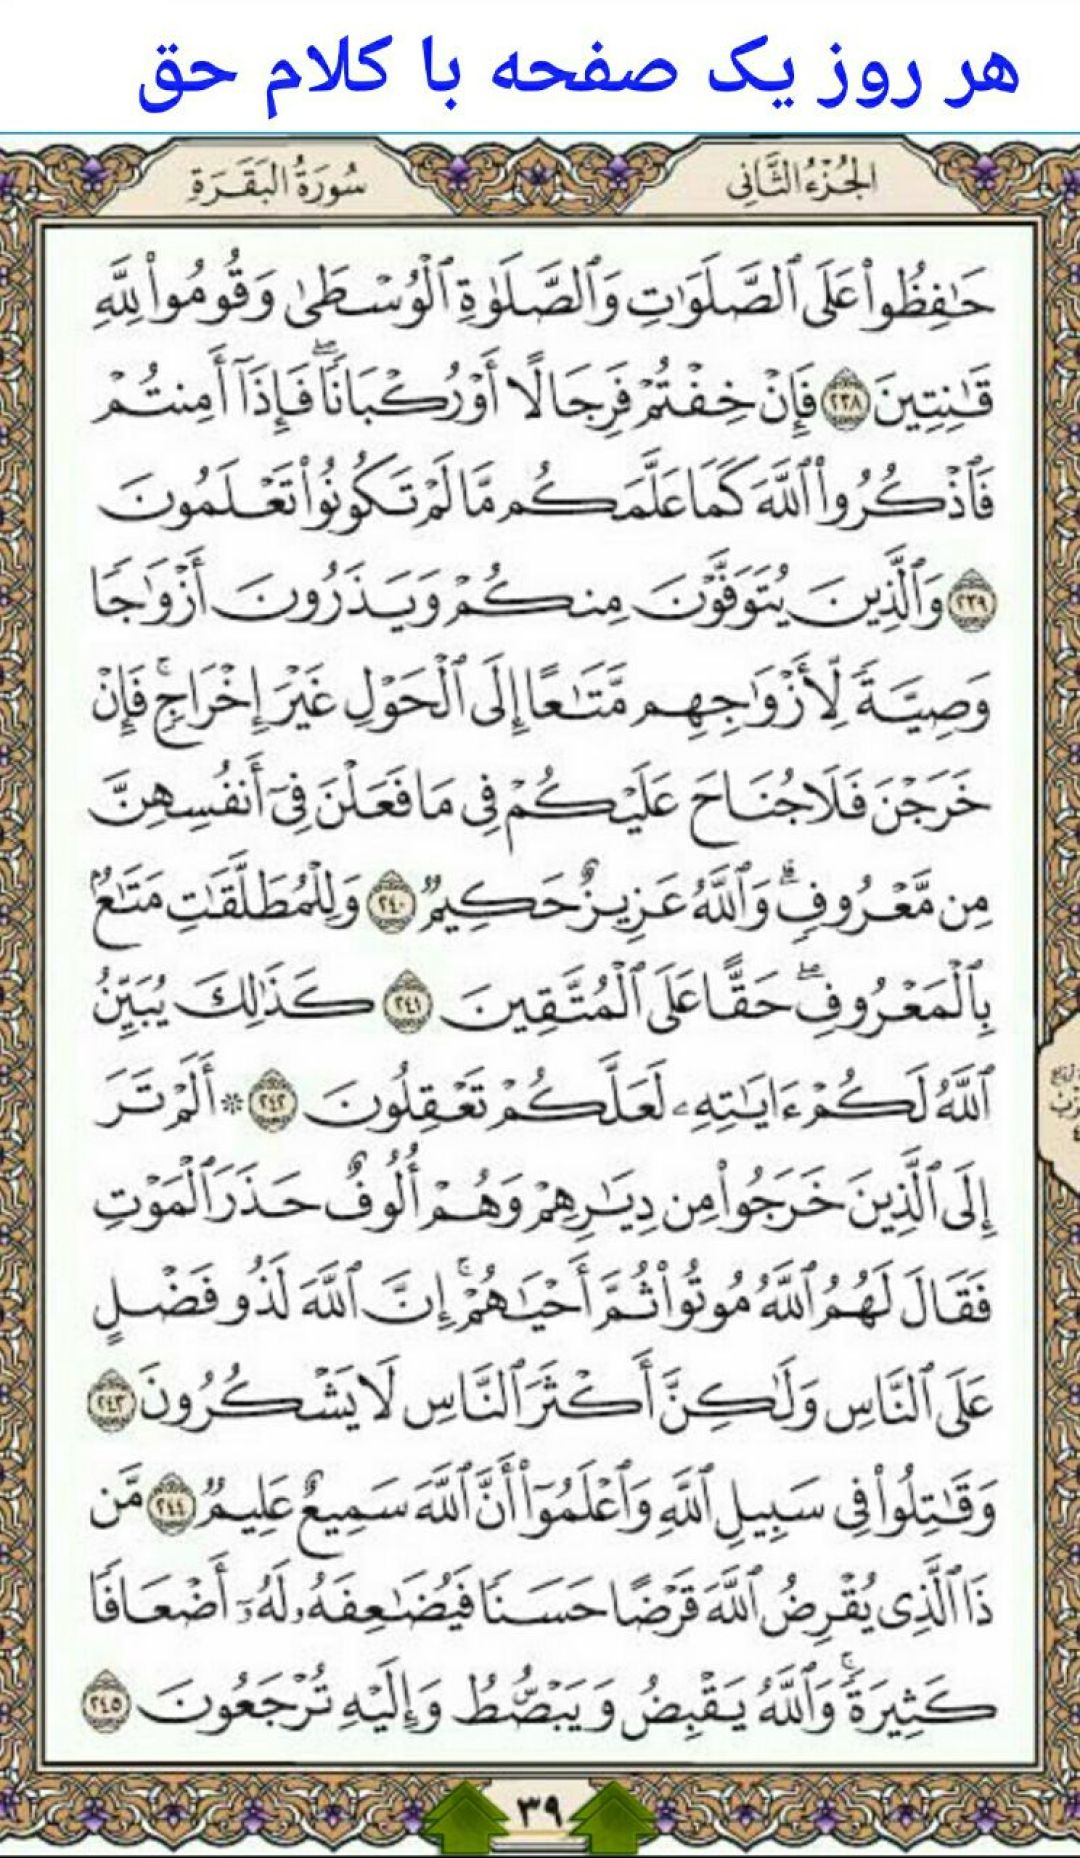 هر روز یک صفحه با کلام حق
الجُزءُ الثَّانی
سُورَةُ البَقَرَةِ
حَٰفِظُوا۟ عَلَى ٱلصَّلَوَٰتِ وَٱلصَّلَوٰةِ ٱلْوُسْطَىٰ وَقُومُوا۟ لِلَّهِ
قَٰنِتِينَ ٢٣٨ فَإِنْ خِفْتُمْ فَرِجَالًا أَوْ رُكْبَانًا ۖ فَإِذَآ أَمِنتُمْ
فَٱذْكُرُوا۟ ٱللَّهَ كَمَا عَلَّمَكُم مَّا لَمْ تَكُونُوا۟ تَعْلَمُونَ
٢٣٩ وَٱلَّذِينَ يُتَوَفَّوْنَ مِنكُمْ وَيَذَرُونَ أَزْوَٰجًا
وَصِيَّةً لِّأَزْوَٰجِهِم مَّتَٰعًا إِلَى ٱلْحَوْلِ غَيْرَ إِخْرَاجٍ ۚ فَإِنْ
خَرَجْنَ فَلَا جُنَاحَ عَلَيْكُمْ فِى مَا فَعَلْنَ فِىٓ أَنفُسِهِنَّ
مِن مَّعْرُوفٍ ۗ وَٱللَّهُ عَزِيزٌ حَكِيمٌ ٢٤٠ وَلِلْمُطَلَّقَٰتِ مَتَٰعٌۢ
بِٱلْمَعْرُوفِ ۖ حَقًّا عَلَى ٱلْمُتَّقِينَ ٢٤١ كَذَٰلِكَ يُبَيِّنُ
ٱللَّهُ لَكُمْ ءَايَٰتِهِۦ لَعَلَّكُمْ تَعْقِلُونَ ٢٤٢ * أَلَمْ تَرَ
إِلَى ٱلَّذِينَ خَرَجُوا۟ مِن دِيَٰرِهِمْ وَهُمْ أُلُوفٌ حَذَرَ ٱلْمَوْتِ
فَقَالَ لَهُمُ ٱللَّهُ مُوتُوا۟ ثُمَّ أَحْيَٰهُمْ ۚ إِنَّ ٱللَّهَ لَذُو فَضْلٍ
عَلَى ٱلنَّاسِ وَلَٰكِنَّ أَكْثَرَ ٱلنَّاسِ لَا يَشْكُرُونَ ٢٤٣
وَقَٰتِلُوا۟ فِى سَبِيلِ ٱللَّهِ وَٱعْلَمُوٓا۟ أَنَّ ٱللَّهَ سَمِيعٌ عَلِيمٌ ٢٤٤ مَّن
ذَا ٱلَّذِى يُقْرِضُ ٱللَّهَ قَرْضًا حَسَنًا فَيُضَٰعِفَهُۥ لَهُۥٓ أَضْعَافًا
كَثِيرَةً ۚ وَٱللَّهُ يَقْبِضُ وَيَبْصُۜطُ وَإِلَيْهِ تُرْجَعُونَ ٢٤٥
٣٩